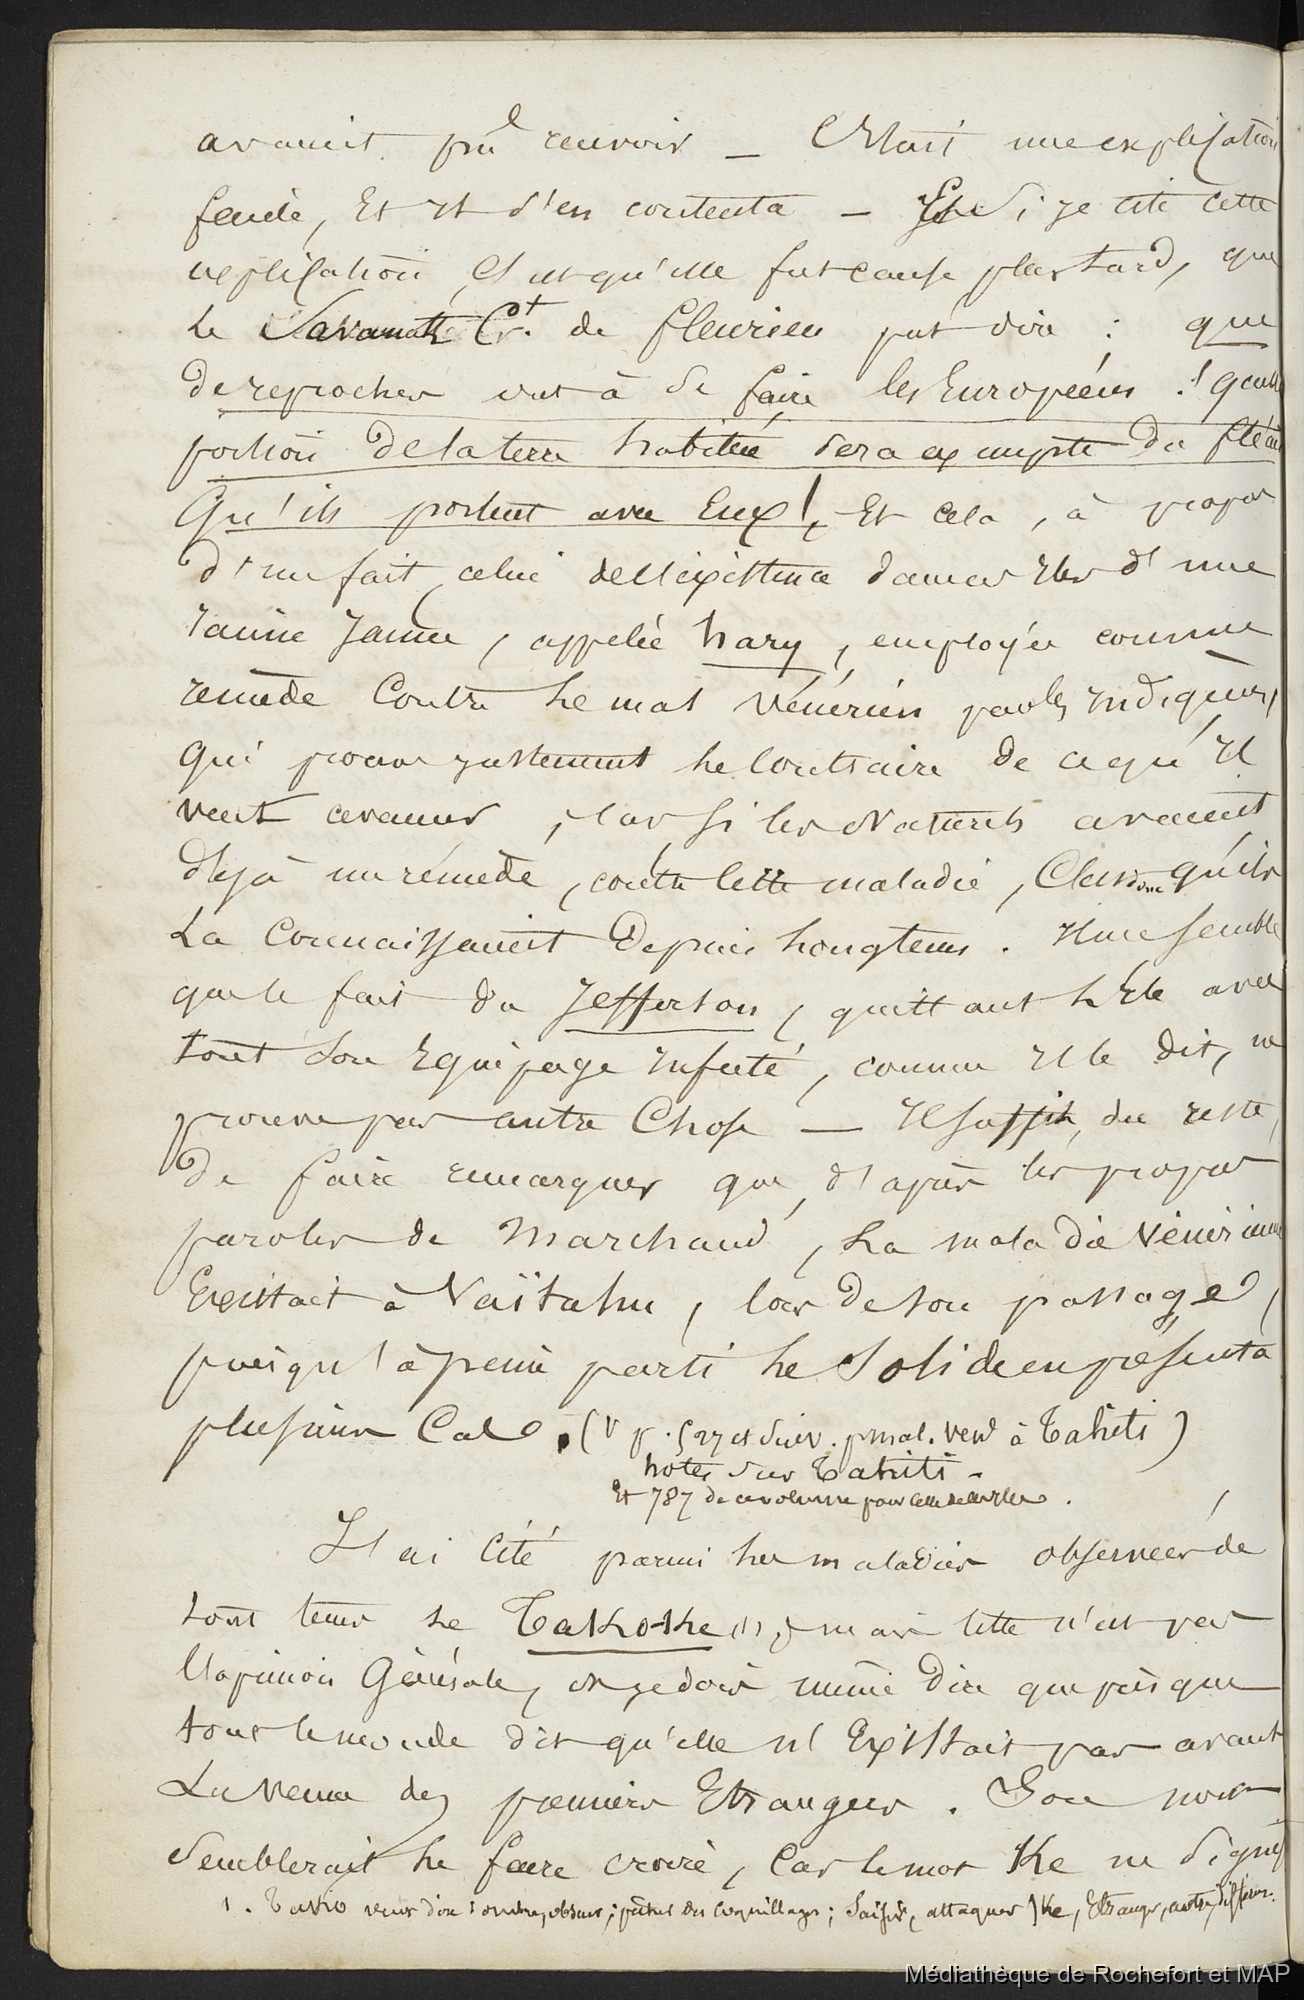 avaient pu le recevoir _ C'était une explication
facile, Et Il s'en contenta _ Et Si je cite cette
explication, C'est qu'elle fut cause plus tard, que
Le Savant Ct. de fleurieu put dire : que
de reproches ont à se faire les Européens ! quelle
portion de la terre habitée sera exempte du fléau
Qu'ils portent avec Eux !, Et cela, à propos
d'un fait, celui de l'existence dans ces Iles d'une
racine Jaune, appelée hary, employée comme
remède Contre le mal vénérien par les Indigènes,
Qui prouve justement le Contraire de ce qu'Il
veut avancer, Car si les Naturels avaient
déjà un rémède, contre cette maladie, C'est donc qu'ils
La Connaissaient Depuis longtems. Il me semble
que le fait du Jefferson, quittant l'Ile avec
tout Son Equipage Infecté, comme Il le dit, ne
prouve pas autre Chose _ Il suffit, du reste,
de faire remarquer que, d'après les propres
paroles de Marchand, La maladie vénérienne
Existait à Vaïtahu, lors de son passage,
puisqu'à peine parti le Solide en présenta
plusieurs Cas. (V p. 527 et Suiv. pr mal. ven à Tahiti)
notes sur Tahiti _
Et 787 de ce volume pour celle de ces Iles.
J'ai Cité parmi les maladies observées de
tout tems le Takokke (1), mais cette n'est pas
L'opinion Générale, et je dois même Dire que presque
tout le monde dit qu'elle n'Existait pas avant
La venue des premiers Etrangers. Son nom
Semblerait le faire croire, Car le mot Ke ne Signifi
1. Tako veut dire : ombre, obscur ; pêcher des coquillages ; Saisir, attaquer) Ke, Etranger, autre, différent.
Médiathèque de Rochefort et MAP